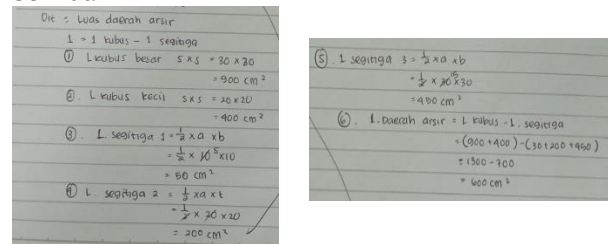 Dit : Luas daerah arsir
1 = 1 kubus - 1 segitiga
① L kubus besar s x s = 30 x 30
= 900 cm²
② L kubus kecil s x s = 20 x 20
= 400 cm²
③ L segitiga 1 = 1/2 x a x b
= 1/2 x 10 5 x 10
= 50 cm²
④ L. segitiga 2 = 1/2 x a x t
= 1/2 x 20 x 20
= 200 cm²
⑤. L segitiga 3 = 1/2 x a x b
= 1/2 x 30 15 x 30
= 450 cm²
⑥. L. Daerah arsir = L kubus - L. segitiga
= (900 + 400) - (50 + 200 + 450)
= 1300 - 700
= 600 cm²